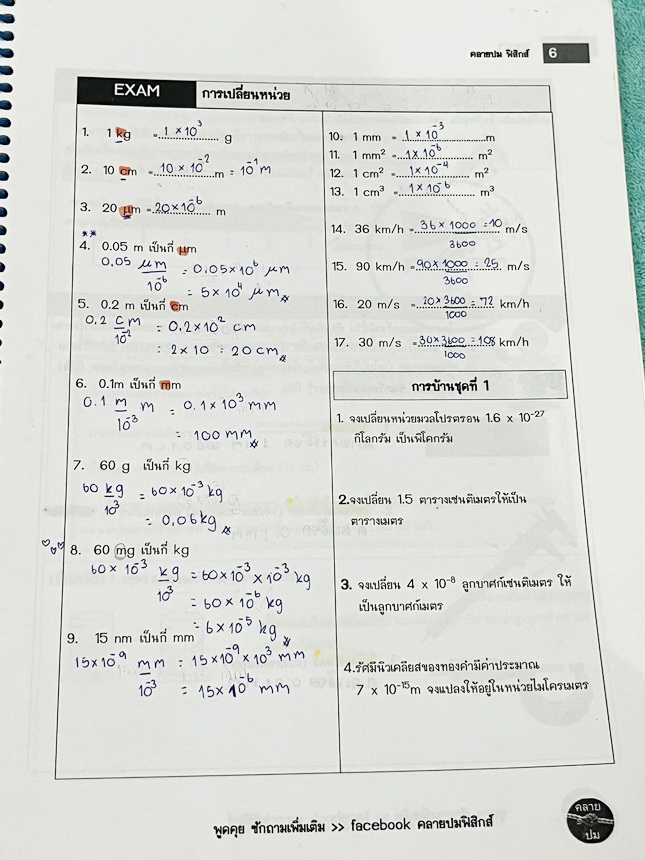 คลายปม ฟิสิกส์ 6
EXAM การเปลี่ยนหน่วย
1. 1 kg = 1 × 10³ g
2. 10 cm = 10 × 10⁻² m = 10⁻¹ m
3. 20 μm = 20×10⁻⁶ m
**
4. 0.05 m เป็นกี่ μm
0,05 μm/10⁻⁶ = 0,05×10⁶ μm
= 5 × 10⁴ μm
5. 0.2 m เป็นกี่ cm
0,2 cm/10⁻² = 0,2×10² cm
= 2×10 = 20 cm
6. 0.1m เป็นกี่ mm
0.1 m/10⁻³ m = 0.1×10³ mm
= 100 mm
7. 60 g เป็นกี่ kg
60 kg/10³ = 60×10⁻³ kg
= 0,06 kg
♡♡♡ 8. 60 mg เป็นกี่ kg
60 × 10⁻³ kg/10³ = 60×10⁻³×10⁻³ kg
= 60×10⁻⁶ kg
= 6×10⁻⁵ kg
9. 15 nm เป็นกี่ mm
15×10⁻⁹ mm/10⁻³ = 15×10⁻⁹×10³ mm
= 15×10⁻⁶ mm
10. 1 mm = 1 × 10⁻³ m
11. 1 mm² = 1×10⁻⁶ m²
12. 1 cm² = 1×10⁻⁴ m²
13. 1 cm³ = 1×10⁻⁶ m³
14. 36 km/h = 36×1000/3600 = 10 m/s
15. 90 km/h = 90×1000/3600 = 25 m/s
16. 20 m/s = 20×3600/1000 = 72 km/h
17. 30 m/s = 30×3600/1000 = 108 km/h
การบ้านชุดที่ 1
1. จงเปลี่ยนหน่วยมวลโปรตรอน 1.6 x 10⁻²⁷
กิโลกรัม เป็นพิโคกรัม
2.จงเปลี่ยน 1.5 ตารางเซนติเมตรให้เป็น
ตารางเมตร
3. จงเปลี่ยน 4 x 10⁻⁸ ลูกบาศก์เซนติเมตร ให้
เป็นลูกบาศก์เมตร
4.รัศมีนิวเคลียสของทองคำมีค่าประมาณ
7 x 10⁻¹⁵m จงแปลงให้อยู่ในหน่วยไมโครเมตร
พูดคุย ซักถามเพิ่มเติม >> facebook คลายปมฟิสิกส์
คลาย
ปม